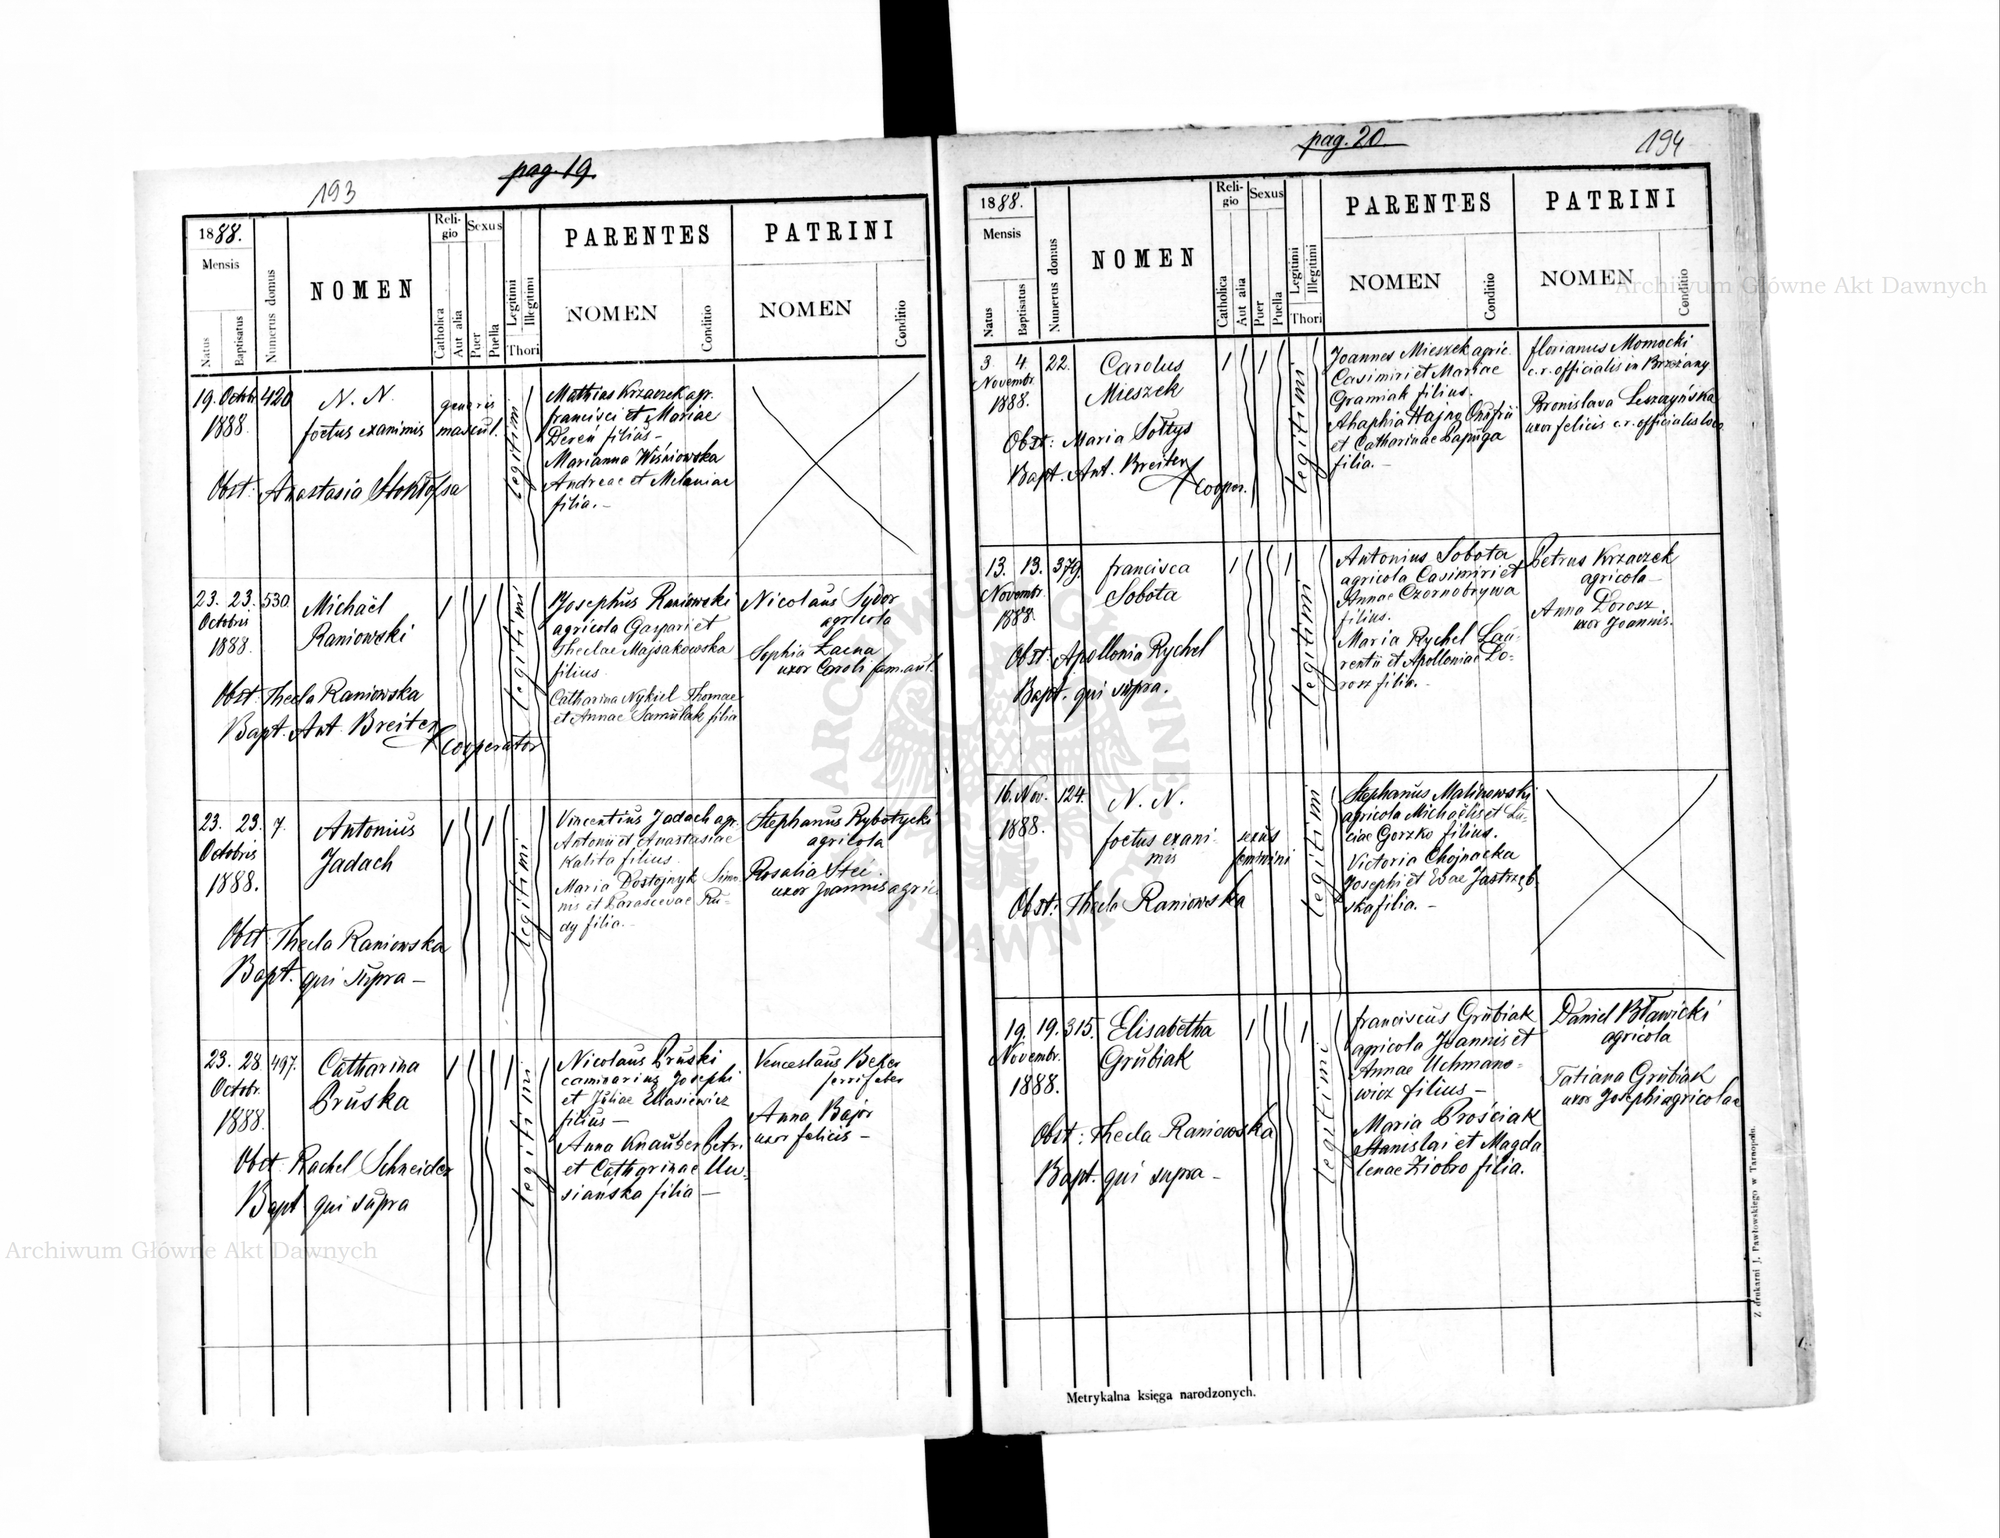 pag. 19.
193
1888.
Mensis
Natus
Baptisatus
Numerus domus
NOMEN
Religio
Catholica
Aut alia
Sexus
Puer
Puella
Legitimi
Illegitimi
Thori
PARENTES
NOMEN
Conditio
PATRINI
NOMEN
Conditio
19. Octobr. 420
1888.
N. N.
foetus exanimis
generis
mascul.
legitimi
Mathias Krzaczek agr.
francisci et Mariae
Dereń filius –
Marianna Wiśniowska
Andreae et Melaniae
filia. –
Obst: Anastasia
23. 23. 530.
Octobris
1888.
Michaël
Raniowski
legitimi
Josephus Raniowski
agricola Gaspari et
Theclae Majsakowska
filius
Catharina Nykiel Thomae
et Annae Samulak filia
Nicolaus Sydor
agricola
Sophia Łacna
uxor Caroli fam. aul.
Obst: Thecla Raniowska
Bapt. Ant. Breiter
Cooperator
23. 23. 7.
Octobris
1888.
Antonius
Jadach
legitimi
Vincentius Jadach agr.
Antonii et Anastasiae
Kalita filius.
Maria Dostojnyk Simo
nis et Parascevae Ru-
dy filia. –
Stephanus Rybotycki
agricola
Rosalia Stec
uxor Joannis agric
Obst: Thecla Raniowska
Bapt. qui supra –
23. 28. 497.
Octobr.
1888.
Catharina
Pruska
legitimi
Nicolaus Pruski
caminarius Josephi
et Juliae Eliasiewicz
filius –
Anna Knauber Petri
et Catharinae
sianska filia –
Venceslaus Beker
ferrifaber
Anna Bajor
uxor felicis –
Obst. Rachel Schneider
Bapt qui supra
pag. 20
194
1888.
Mensis
Natus
Baptisatus
Numerus domus
NOMEN
Religio
Catholica
Aut alia
Sexus
Puer
Puella
Legitimi
Illegitimi
Thori
PARENTES
NOMEN
Conditio
PATRINI
NOMEN
Conditio
3. 4. 22.
Novembr.
1888.
Carolus
Mieszek
legitimi
Joannes Mieszek agric.
Casimiri et Mariae
Gramiak filius.
Ahaphia Hajng Onufrii
et Catharinae Papuga
filia. –
florianus Momocki
c. r. officialis in Brzeżany
Bronislava Leszczyńska
uxor felicis c. r. officialis loco
Obst: Maria Sołtys
Bapt. Ant. Breiter
Cooper.
13. 13. 379.
Novembr.
1888.
francisca
Sobota
legitimi
Antonius Sobota
agricola Casimiri et
Annae Czornobrywa
filius.
Maria Rychel Lau-
rentii et Apolloniae Do-
rosz filia. –
Petrus Krzaczek
agricola –
Anna Dorosz
uxor Joannis.
Obst. Apollonia Rychel
Bapt. qui supra.
16. Nov. 124.
1888.
N. N.
foetus exani-
mis
sexus
feminini
legitimi
Stephanus Malinowski
agricola Michaëlis et Lu-
ciae Gorzko filius.
Victoria Chojnacka
Josephi et Evae Jastrzęb-
ska filia. –
Obst: Thecla Raniowska
19. 19. 315.
Novembr.
1888.
Elisabetha
Grubiak
legitimi
franciscus Grubiak
agricola Joannis et
Annae Uchmano-
wicz filius –
Maria Prościak
Stanislai et Magda
lenae Ziobro filia.
Daniel Bławicki
agricola
Tatiana Grubiak
uxor Josephi agricolae
Obst: Thecla Raniowska
Bapt. qui supra –
Metrykalna księga narodzonych.
Z drukarni J. Pawłowskiego w Tarnopolu.
Archiwum Główne Akt Dawnych
Archiwum Główne Akt Dawnych
ARCHIWUM GŁÓWNE AKT DAWNYCH